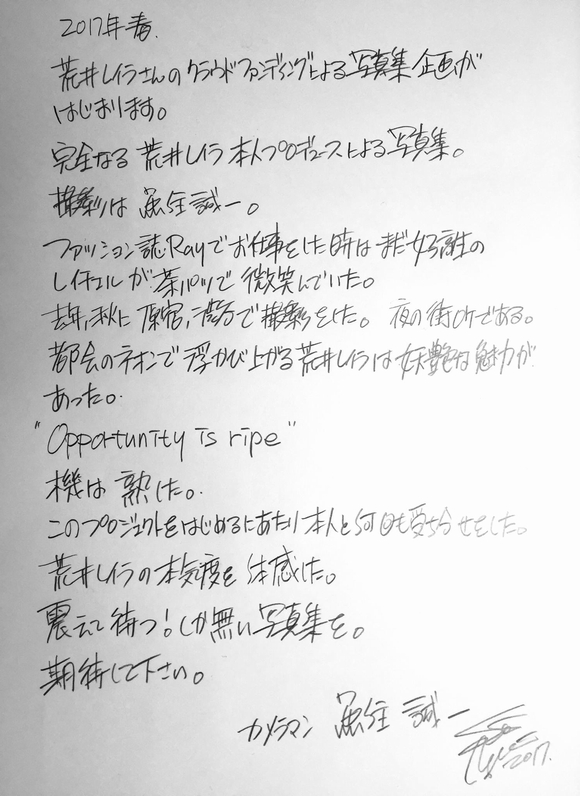 2017年春.
荒井レイラさんのクラウドファンディングによる写真集企画が
はじまります。
完全なる荒井レイラ本人プロデュースによる写真集。
撮影は魚住誠一。
ファッション誌Rayでお仕事をした時はまだ女子高生の
レイチェルが茶パツで微笑んでいた。
去年、秋に原宿、渋谷で撮影をした。夜の街ロケである。
都会のネオンで浮かび上がる荒井レイラは妖艶な魅力が
あった。
"Opportunity is ripe"
機は熟した。
このプロジェクトをはじめるにあたり本人と何回も打ち合せをした。
荒井レイラの本気度を体感した。
震えて待つ!しか無い写真集を。
期待して下さい。
カメラマン 魚住 誠一
2017.